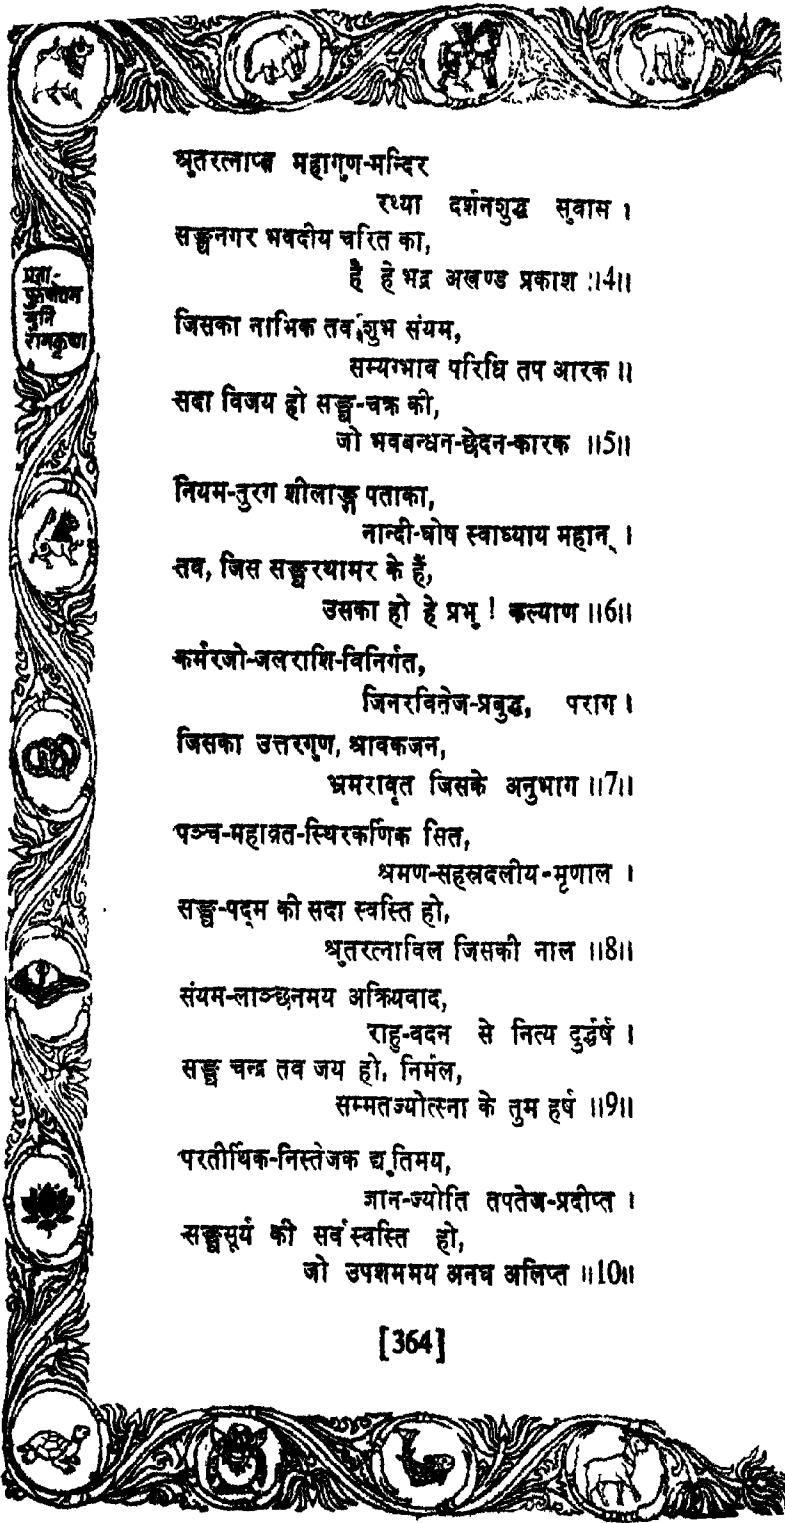 श्रुतरत्नाप्त महागुण-मन्दिर
रथ्या दर्शनशुद्ध सुवास ।
सङ्घनगर भवदीय चरित का,
है हे भद्र अखण्ड प्रकाश ॥4॥
जिसका नाभिक तव शुभ संयम,
सम्यग्भाव परिधि तप आरक ॥
सदा विजय हो सङ्घ-चक्र की,
जो भवबन्धन-छेदन-कारक ॥5॥
नियम-तुरग शीलाङ्ग पताका,
नान्दी-घोष स्वाध्याय महान् ।
तव, जिस सङ्घरथामर के हैं,
उसका हो हे प्रभु ! कल्याण ॥6॥
कर्मरजो-जलराशि-विनिर्गत,
जिनरवितेज-प्रबुद्ध, पराग ।
जिसका उत्तरगुण, श्रावकजन,
भ्रमरावृत जिसके अनुभाग ॥7॥
पञ्च-महाव्रत-स्थिरकर्णिक सित,
श्रमण-सहस्रदलीय-मृणाल ।
सङ्घ-पद्म की सदा स्वस्ति हो,
श्रुतरत्नाविल जिसकी नाल ॥8॥
संयम-लाञ्छनमय अक्रियवाद,
राहु-वदन से नित्य दुर्द्धर्ष ।
सङ्घ चन्द्र तव जय हो, निर्मल,
सम्मतज्योत्स्ना के तुम हर्ष ॥9॥
परतीर्थिक-निस्तेजक द्युतिमय,
ज्ञान-ज्योति तपतेज-प्रदीप्त ।
सङ्घसूर्य की सर्व स्वस्ति हो,
जो उपशममय अनघ अलिप्त ॥10॥
[364]
मुनि
रामकृष्ण